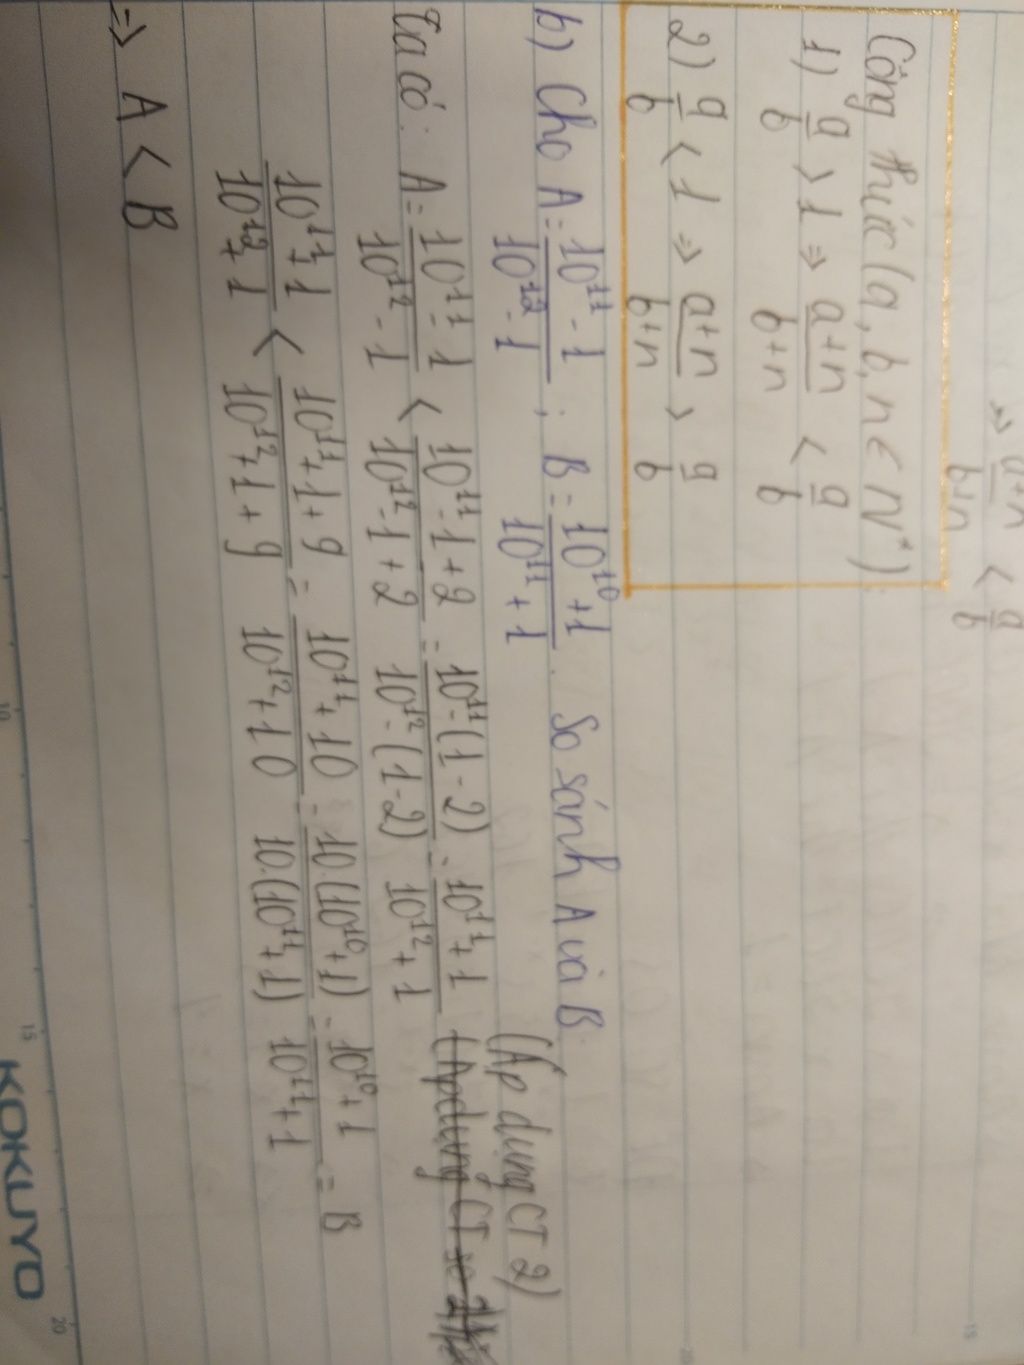 => a+n/b+n < a/b
Công thức (a, b, n ∈ N*):
1) a/b > 1 => a+n/b+n < a/b
2) a/b < 1 => a+n/b+n > a/b
b) Cho A = 10¹¹ - 1/10¹² - 1 ; B = 10¹⁰ + 1/10¹¹ + 1. So sánh A và B.
(Áp dụng CT 2)
Ta có: A = 10¹¹ - 1/10¹² - 1 < 10¹¹ - 1 + 2/10¹² - 1 + 2 = 10¹¹ - (1 - 2)/10¹² - (1 - 2) = 10¹¹ + 1/10¹² + 1 (Áp dụng CT
10¹¹ + 1/10¹² + 1 < 10¹¹ + 1 + 9/10¹² + 1 + 9 = 10¹¹ + 10/10¹² + 10 = 10.(10¹⁰ + 1)/10.(10¹¹ + 1) = 10¹⁰ + 1/10¹¹ + 1 = B
=> A < B
10
15
20
KOKUYO
15